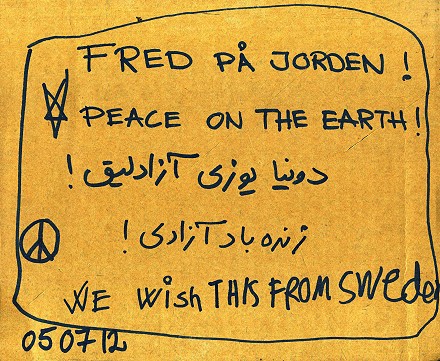 FRED PÅ JORDEN !
PEACE ON THE EARTH !
دونیا یوزی آزادلیق !
زنده باد آزادی !
WE Wish THIS FROM Sweden
050712